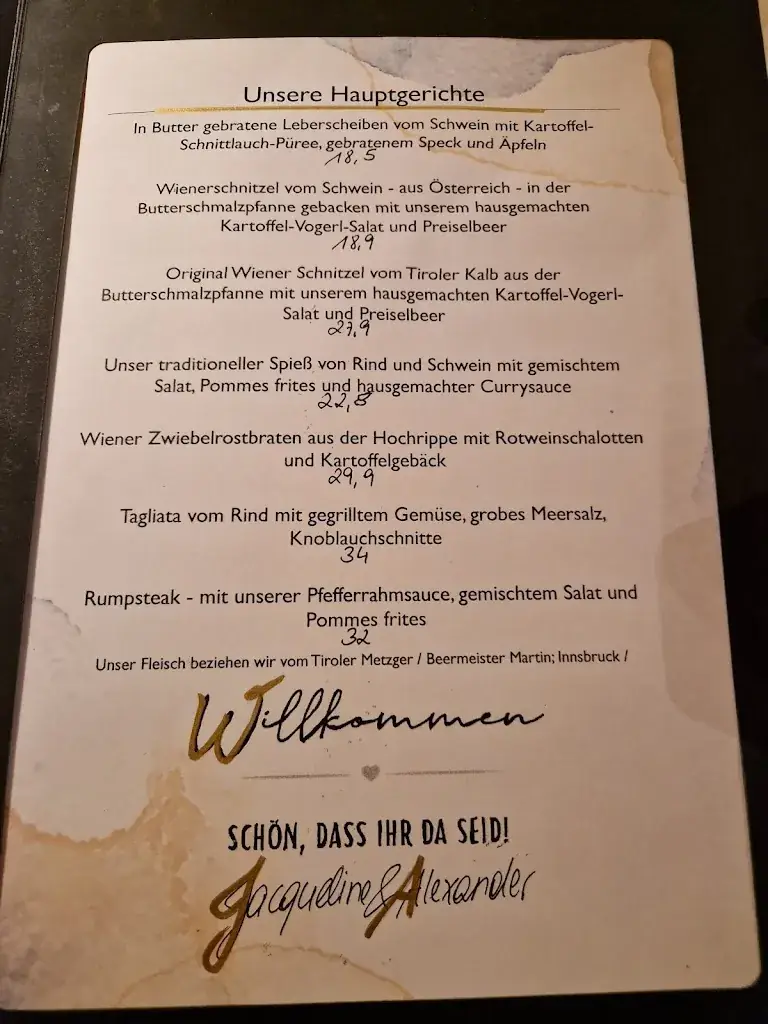 Unsere Hauptgerichte
In Butter gebratene Leberscheiben vom Schwein mit Kartoffel-
Schnittlauch-Püree, gebratenem Speck und Äpfeln
18,5
Wienerschnitzel vom Schwein - aus Österreich - in der
Butterschmalzpfanne gebacken mit unserem hausgemachten
Kartoffel-Vogerl-Salat und Preiselbeer
18,9
Original Wiener Schnitzel vom Tiroler Kalb aus der
Butterschmalzpfanne mit unserem hausgemachten Kartoffel-Vogerl-
Salat und Preiselbeer
27,9
Unser traditioneller Spieß von Rind und Schwein mit gemischtem
Salat, Pommes frites und hausgemachter Currysauce
Wiener Zwiebelrostbraten aus der Hochrippe mit Rotweinschalotten
und Kartoffelgebäck
29,9
Tagliata vom Rind mit gegrilltem Gemüse, grobes Meersalz,
Knoblauchschnitte
34
Rumpsteak - mit unserer Pfefferrahmsauce, gemischtem Salat und
Pommes frites
32
Unser Fleisch beziehen wir vom Tiroler Metzger / Beermeister Martin; Innsbruck /
Willkommen
SCHÖN, DASS IHR DA SEID!
Jacqueline & Alexander